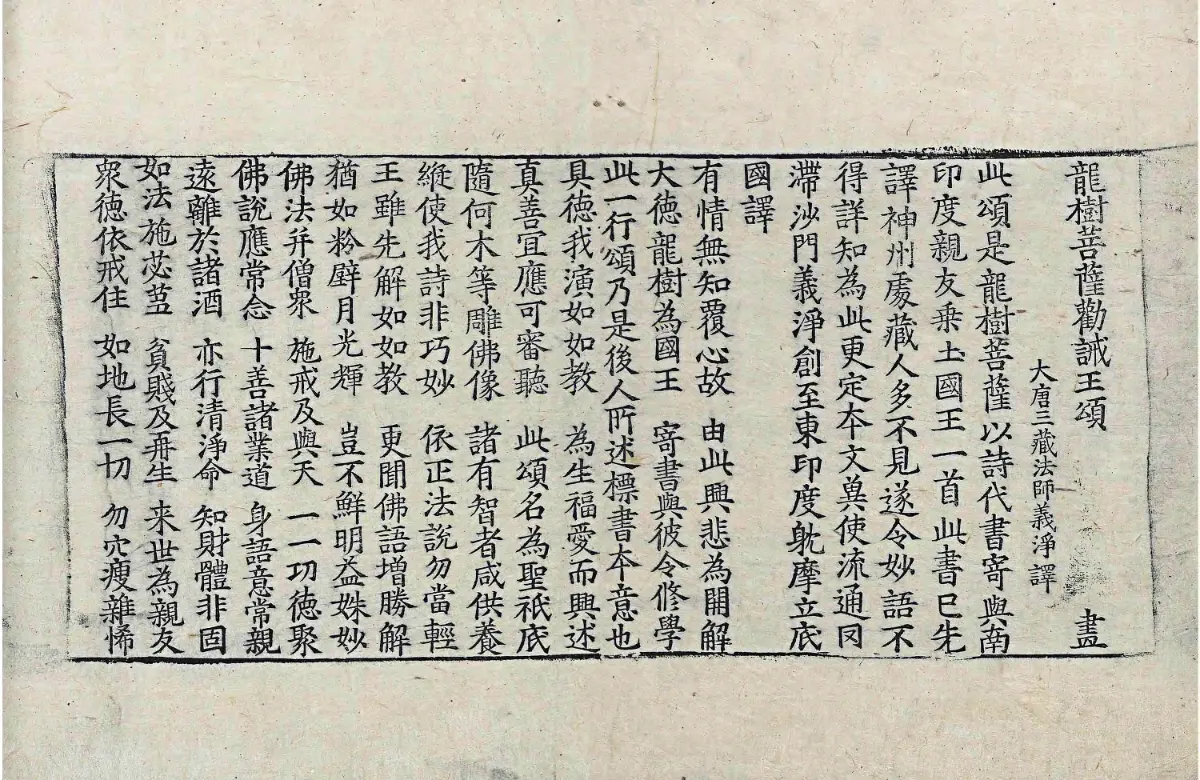 龍樹菩薩勸誡王頌 盡
大唐三藏法師義淨 譯
此頌是龍樹菩薩以詩代書寄與南
印度親友乗土國王一首此書已先
譯神州處藏人多不見遂令妙語不
得詳知為此更定本文冀使流通囘
滯沙門義淨創至東印度躭摩立底
國譯
有情無知覆心故 由此興悲為開解
大德龍樹為國王 寄書與彼令修學
此一行頌乃是後人所述標書本意也
具德我演如如教 為生福愛而興述
真善宜應可審聽 此頌名為聖祇底
隨何木等雕佛像 諸有智者咸供養
縱使我詩非巧妙 依正法說勿當輕
王雖先解如如教 更聞佛語增勝解
猶如粉壁月光輝 豈不鮮明益姝妙
佛法并僧眾 施戒及與天 一一功德聚
佛說應常念 十善諸業道 身語意常親
遠離於諸酒 亦行清淨命 知財體非固
如法施苾芻 貧賤及再生 来世為親友
眾德依戒住 如地長一切 勿穴瘦雜悕